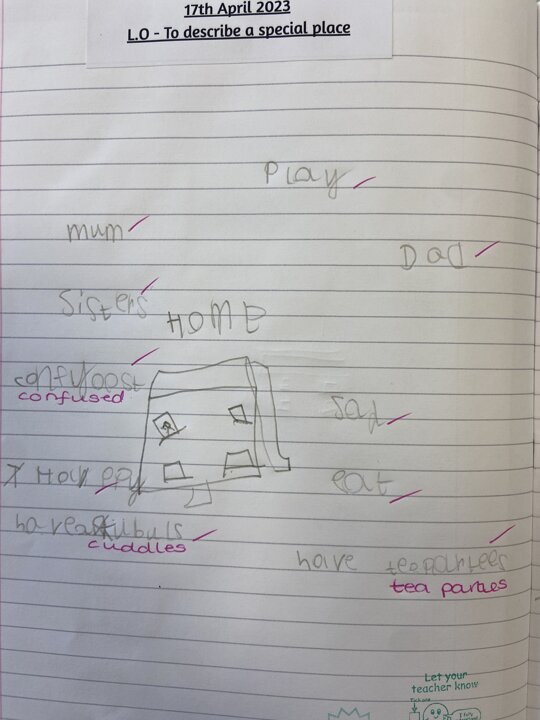 17th April 2023
L.O - To describe a special place
Play
mum
Dad
Sisters
HOME
confused
sad
Happy
eat
have
cuddles
have teapartees
tea parties
Let your
teacher know